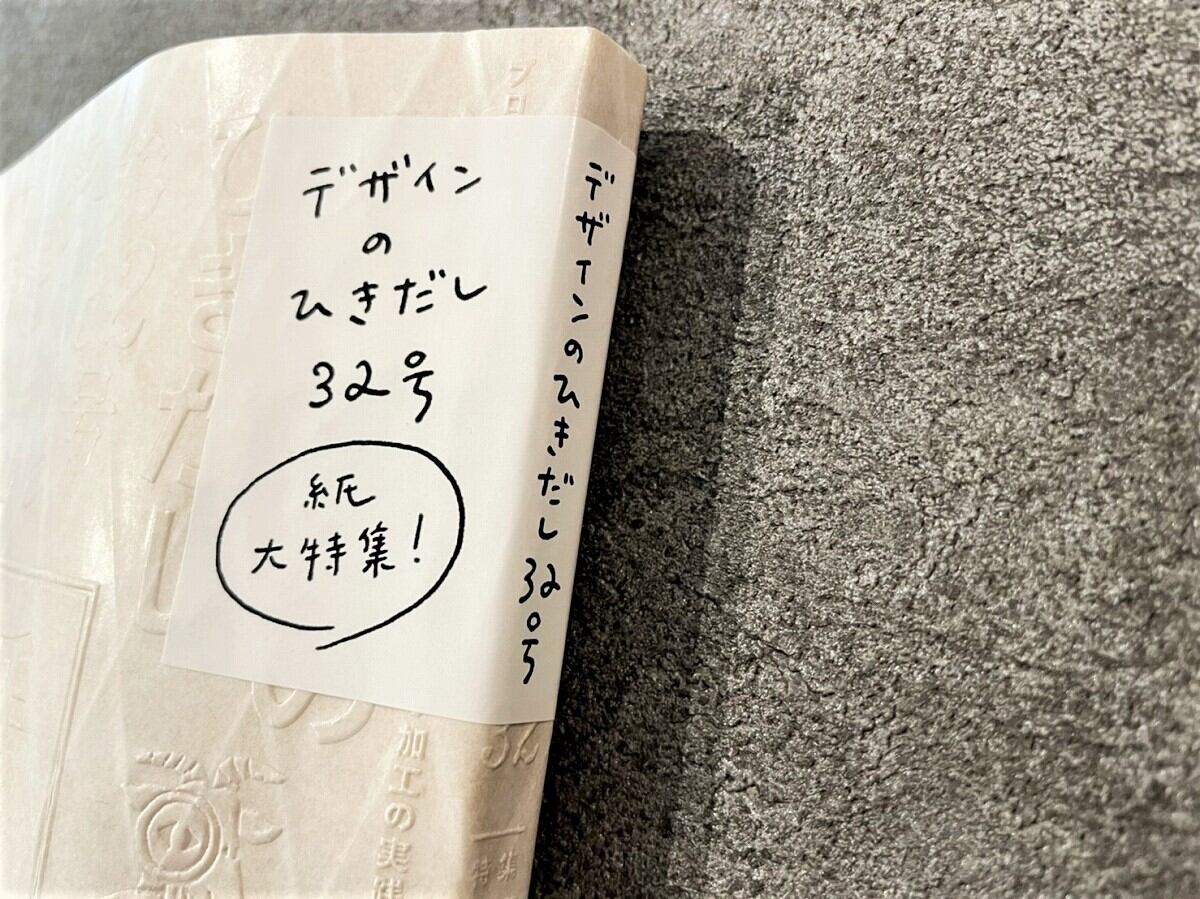 デザイン
の
ひきだし
32号
紙
大特集!
デザインのひきだし 32号
プロ
加工の実
特集